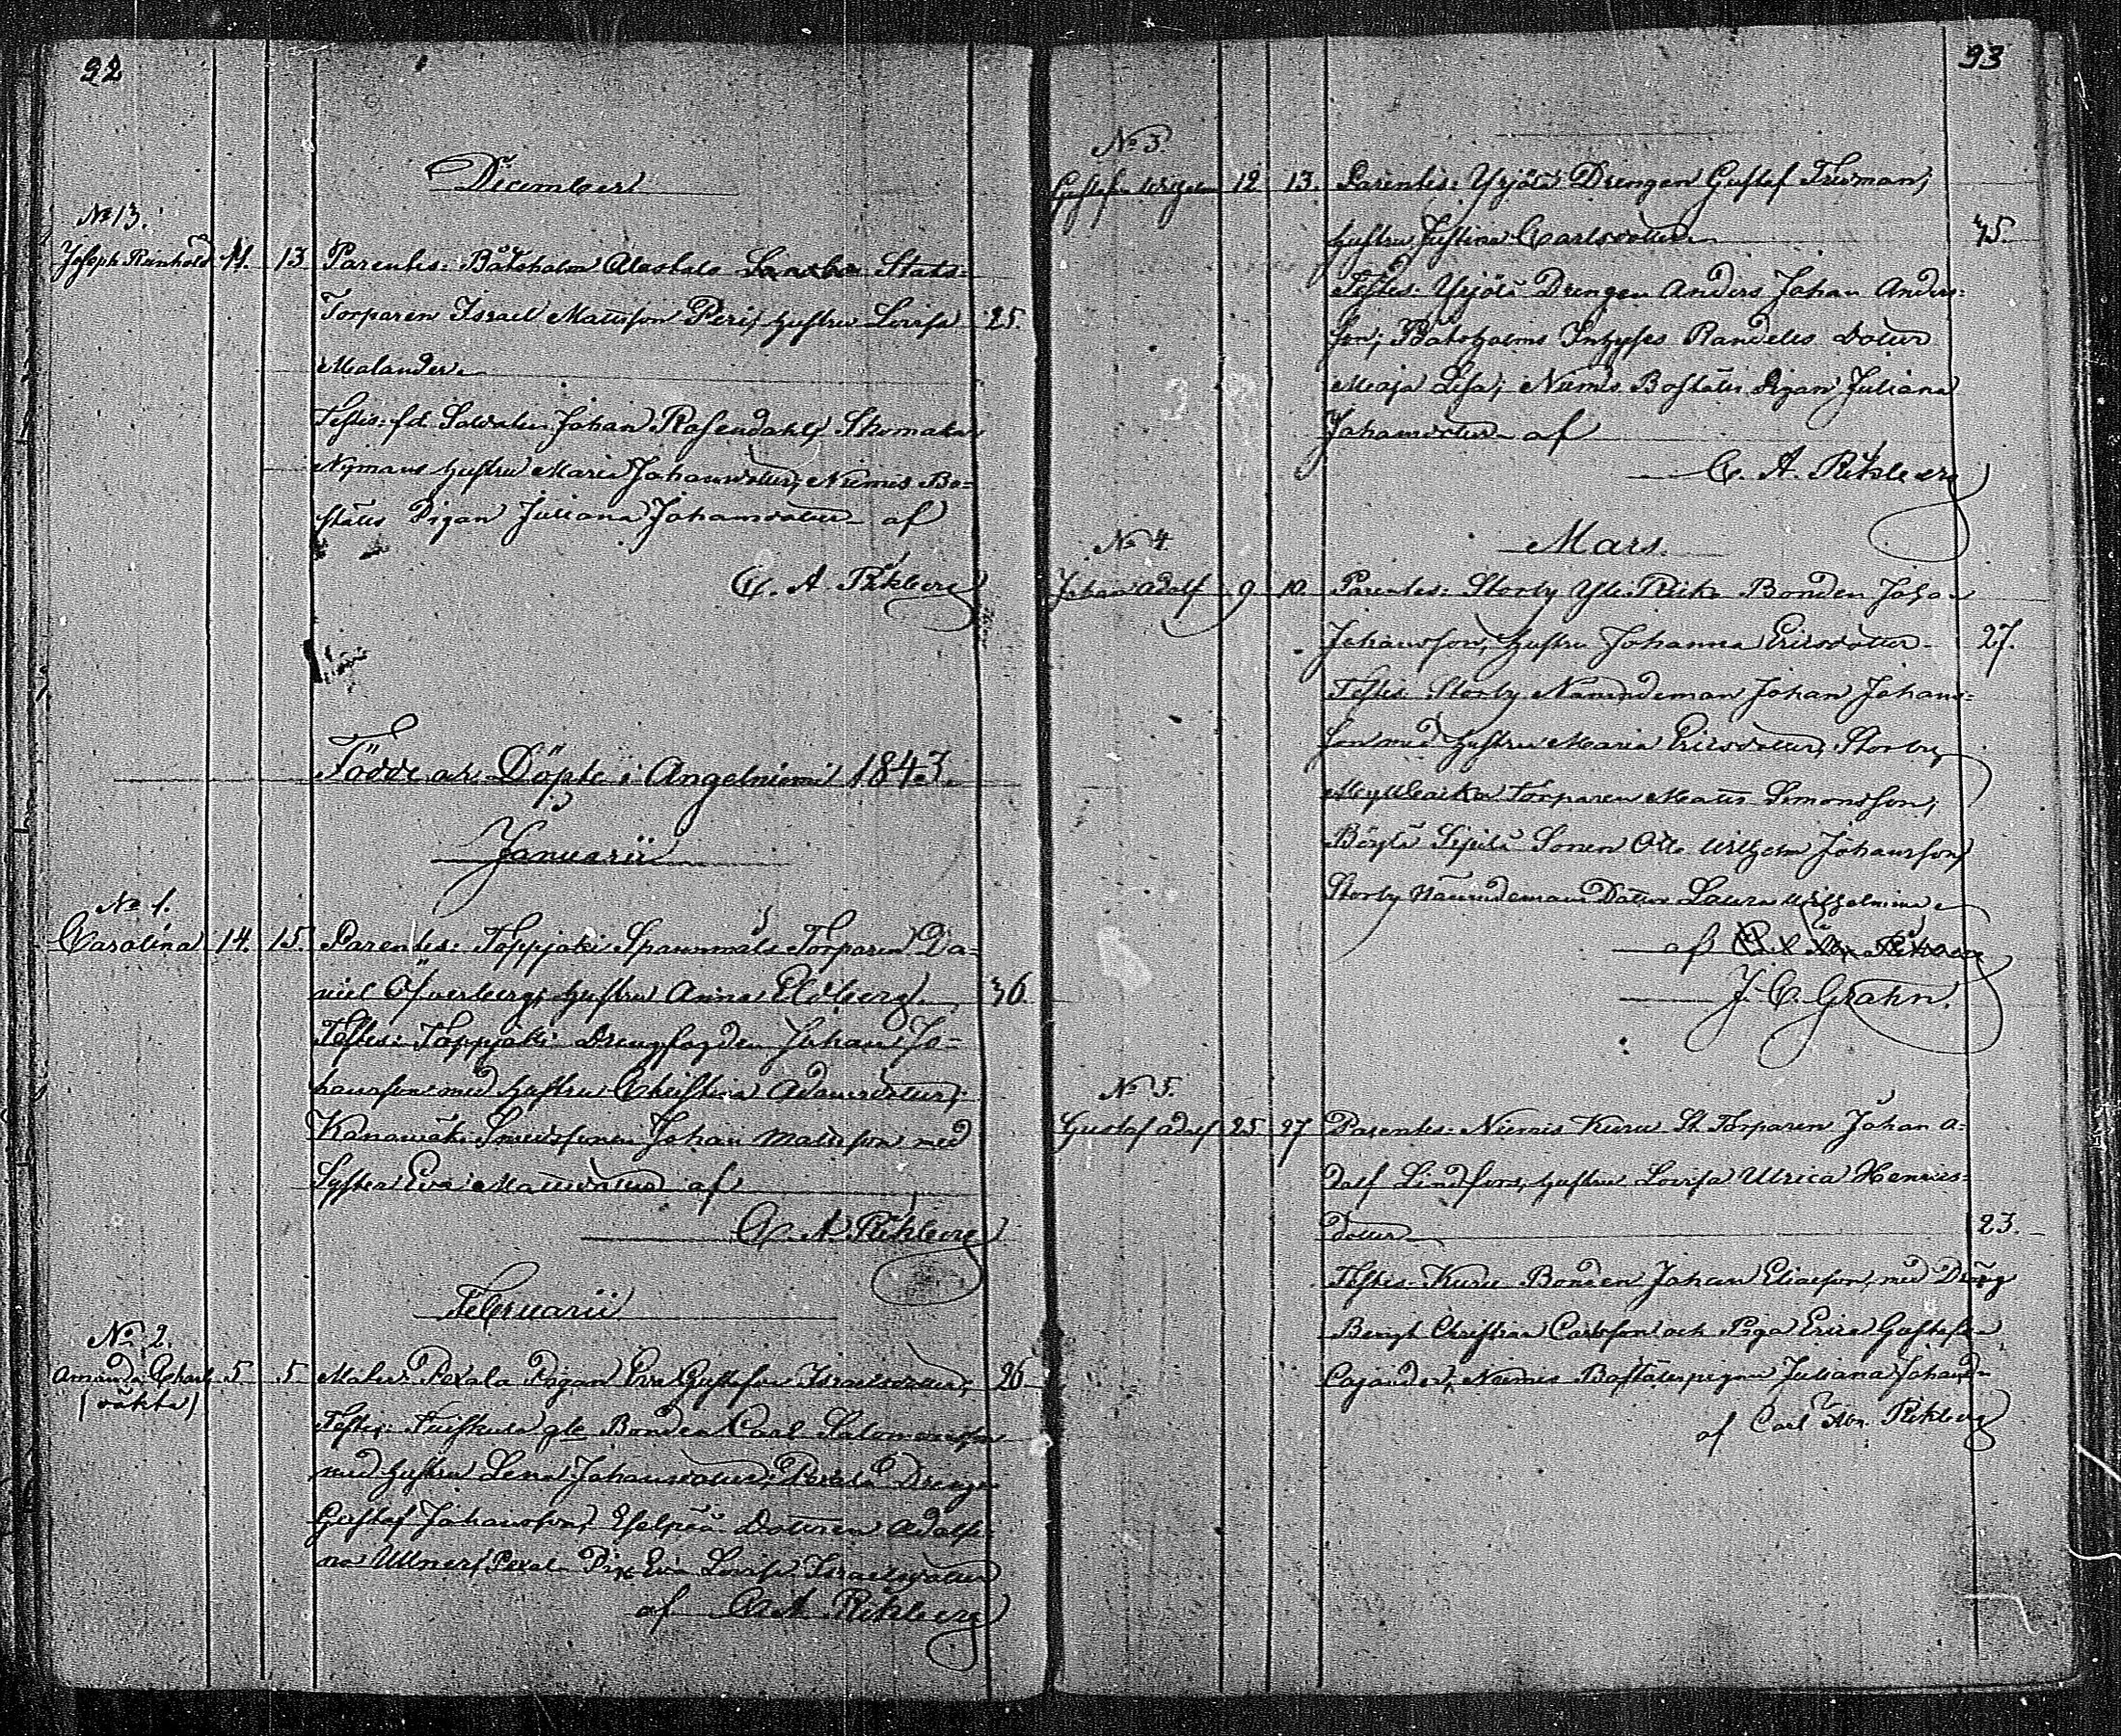 92
December
No 13.
Joseph Reinhold 11. 13 Parentes: Båtsholm Alastalo Stats
Torparen Israel Mattsson hustru Lovisa 25.
Malander.
Testes: fd. Soldaten Johan Rosendahl, Skomakar
Nymans hustru Maria Johansdotter, Niemis Bo-
ställs Pigan Juliana Johansdotter af
C. A. Rikberg
Födde och Döpte i Angelniemi 1843.
Januarii
No 1.
Carolina 14. 15. Parentes: Toppjoki Torparen Da-
niel Öfverberg, hustru Anna Eloberg. 36.
Testes: Toppjoki Drengfogden Johan Jo-
hansson med hustru Christina Adamsdotter;
Johan Mattsson med
Syster Eva Mattsdotter af
C. A. Rikberg
Februarii
No 2.
Amanda Charl. 5. 5 Mater Pexala Pigan Eva Gustafva Israelsdotter, 26
(oäkta)
Testes: Bonden Carl Salomonsson
med hustru Lena Johansdotter, Pexala Dreng
Gustaf Johansson, Dottren Adolfi-
na Ullner, Pexala Pig. Eva Lovisa Israelsdotter
af C. A. Rikberg
93
No 3.
Gustaf Wilhelm 12 13. Parentes: Yrjölä Drengen Gustaf Triman,
hustru Justina Carlsdotter 45.
Testes: Yrjölä Drengen Anders Johan Anders-
son; Båtsholms Inhyses Randelis dotter
Maja Lisa; Niemis Boställs Pigan Juliana
Johansdotter af
C. A. Rikberg
Mars.
No 4.
Johan Adolf 9 10. Parentes: Storby Yli Bonden Johan
Johansson, hustru Johanna Ericsdotter 27.
Testes Storby Nämndeman Johan Johans-
son med hustru Maria Ericsdotter, Storby
Torparen Matts Simonsson,
Sipilä Sonen Otto Wilhelm Johansson,
Storby Nämndemans Dotter Laura Wilhelmina
af
J. C. Grahn.
No 5.
Gustaf Adolf 25 27 Parentes: Niemis Kuru St. Torparen Johan A-
dolf Lindfors, hustru Lovisa Ulrica Henrics-
dotter 23.
Testes: Kuru Bonden Johan Eliasson, med Dräng
Bengt Christian Carlsson och Piga Erica Gustafva
Cajander, Niemis Boställspigan Juliana Johansdr
af Carl Abr. Rikberg